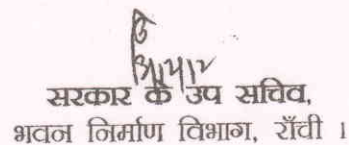 सरकार के उप सचिव,
भवन निर्माण विभाग, राँची ।